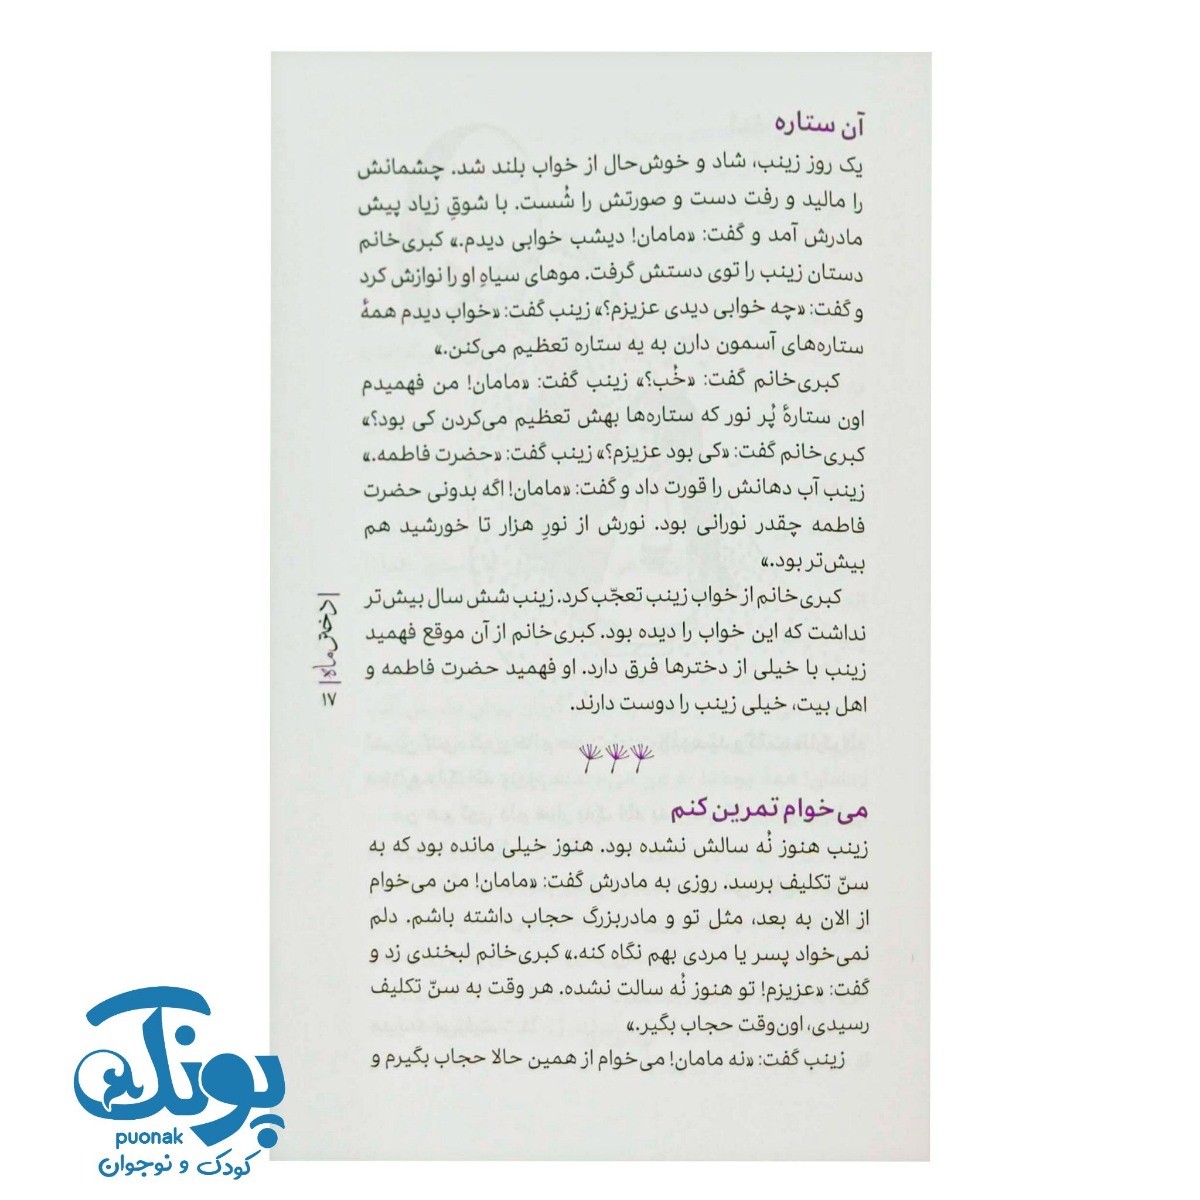 آن ستاره
یک روز زینب، شاد و خوش‌حال از خواب بلند شد. چشمانش
را مالید و رفت دست و صورتش را شُست. با شوقِ زیاد پیش
مادرش آمد و گفت: «مامان! دیشب خوابی دیدم.» کبری‌خانم
دستان زینب را توی دستش گرفت. موهای سیاهِ او را نوازش کرد
و گفت: «چه خوابی دیدی عزیزم؟» زینب گفت: «خواب دیدم همهٔ
ستاره‌های آسمون دارن به یه ستاره تعظیم می‌کنن.»
کبری‌خانم گفت: «خُب؟» زینب گفت: «مامان! من فهمیدم
اون ستارهٔ پُر نور که ستاره‌ها بهش تعظیم می‌کردن کی بود؟»
کبری‌خانم گفت: «کی بود عزیزم؟» زینب گفت: «حضرت فاطمه.»
زینب آب دهانش را قورت داد و گفت: «مامان! اگه بدونی حضرت
فاطمه چقدر نورانی بود. نورش از نورِ هزار تا خورشید هم
بیش‌تر بود.»
کبری‌خانم از خواب زینب تعجّب کرد. زینب شش سال بیش‌تر
نداشت که این خواب را دیده بود. کبری‌خانم از آن موقع فهمید
زینب با خیلی از دخترها فرق دارد. او فهمید حضرت فاطمه و
اهل بیت، خیلی زینب را دوست دارند.
می‌خوام تمرین کنم
زینب هنوز نُه سالش نشده بود. هنوز خیلی مانده بود که به
سنّ تکلیف برسد. روزی به مادرش گفت: «مامان! من می‌خوام
از الان به بعد، مثل تو و مادربزرگ حجاب داشته باشم. دلم
نمی‌خواد پسر یا مردی بهم نگاه کنه.» کبری‌خانم لبخندی زد و
گفت: «عزیزم! تو هنوز نُه سالت نشده. هر وقت به سنّ تکلیف
رسیدی، اون‌وقت حجاب بگیر.»
زینب گفت: «نه مامان! می‌خوام از همین حالا حجاب بگیرم و
|دختر ماه|
۱۷
پونک
puonak
کودک و نوجوان